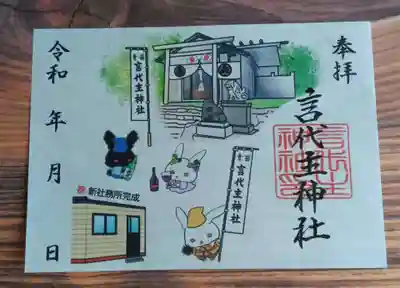 奉拝
言代主神社
言代主神社
言代主神社
新社務所完成
令和 年 月 日